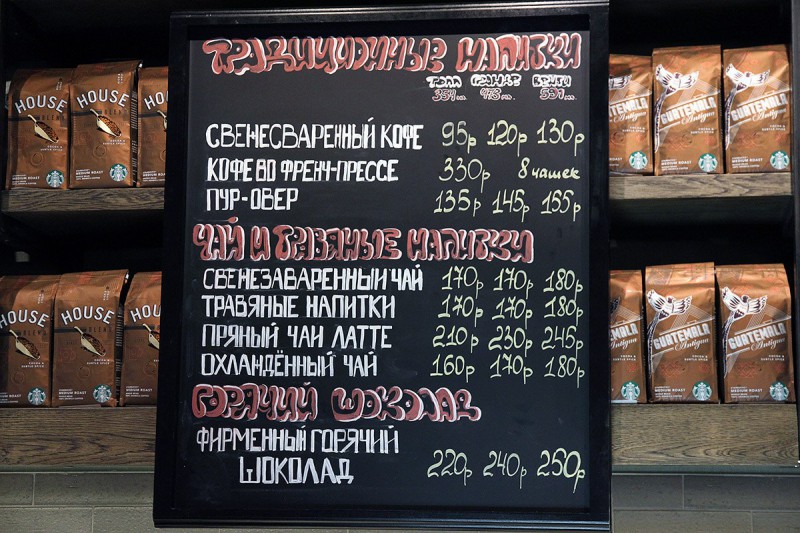 ТРАДИЦИОННЫЕ НАПИТКИ
ТОЛЛ ГРАНДЕ ВЕНТИ
354 мл. 473 мл. 591 мл.
СВЕЖЕСВАРЕННЫЙ КОФЕ 95р 120р 130р
КОФЕ ВО ФРЕНЧ-ПРЕССЕ 330р 8 чашек
ПУР-ОВЕР 135р 145р 155р
ЧАЙ И ТРАВЯНЫЕ НАПИТКИ
СВЕЖЕЗАВАРЕННЫЙ ЧАЙ 170р 170р 180р
ТРАВЯНЫЕ НАПИТКИ 170р 170р 180р
ПРЯНЫЙ ЧАИ ЛАТТЕ 210р 230р 245р
ОХЛАЖДЁННЫЙ ЧАЙ 160р 170р 180р
ГОРЯЧИЙ ШОКОЛАД
ФИРМЕННЫЙ ГОРЯЧИЙ
ШОКОЛАД 220р 240р 250р
HOUSE
HOUSE
HO
GUATEMALA
Antigua
GUATEMALA
Antigua
GUATEMALA
Antigua
HOUSE
BLEND
HOUSE
BLEND
HOU
GUATEMALA
Antigua
GUATEMALA
Antigua
GUATEMALA
Antigua